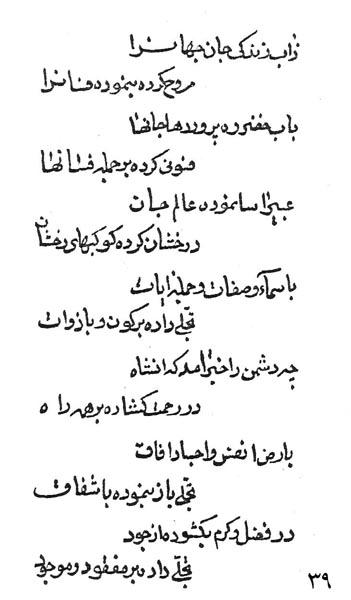 زاب زندکی جان جهانرا
مروح کرده بنموده فنانرا
باب خضر ره پرورد ها جانها
فنونی کرده بر جمله فتانها
عبیر اسا نموده عالم جان
درخشان کرده کوکبهای رخشان
باسمآء و صفات و جمله ایات
تجلی داده بر کون و با ذوات
چه دشمن را خبر امد که انشاه
در رحمت کشاده بر همه راه
بارض انفس و احباد افاق
تجلی باز بنموده باشفاق
در فضل و کرم بکشوده از جود
تجلی داده بر مفقود و موجود
۳۹